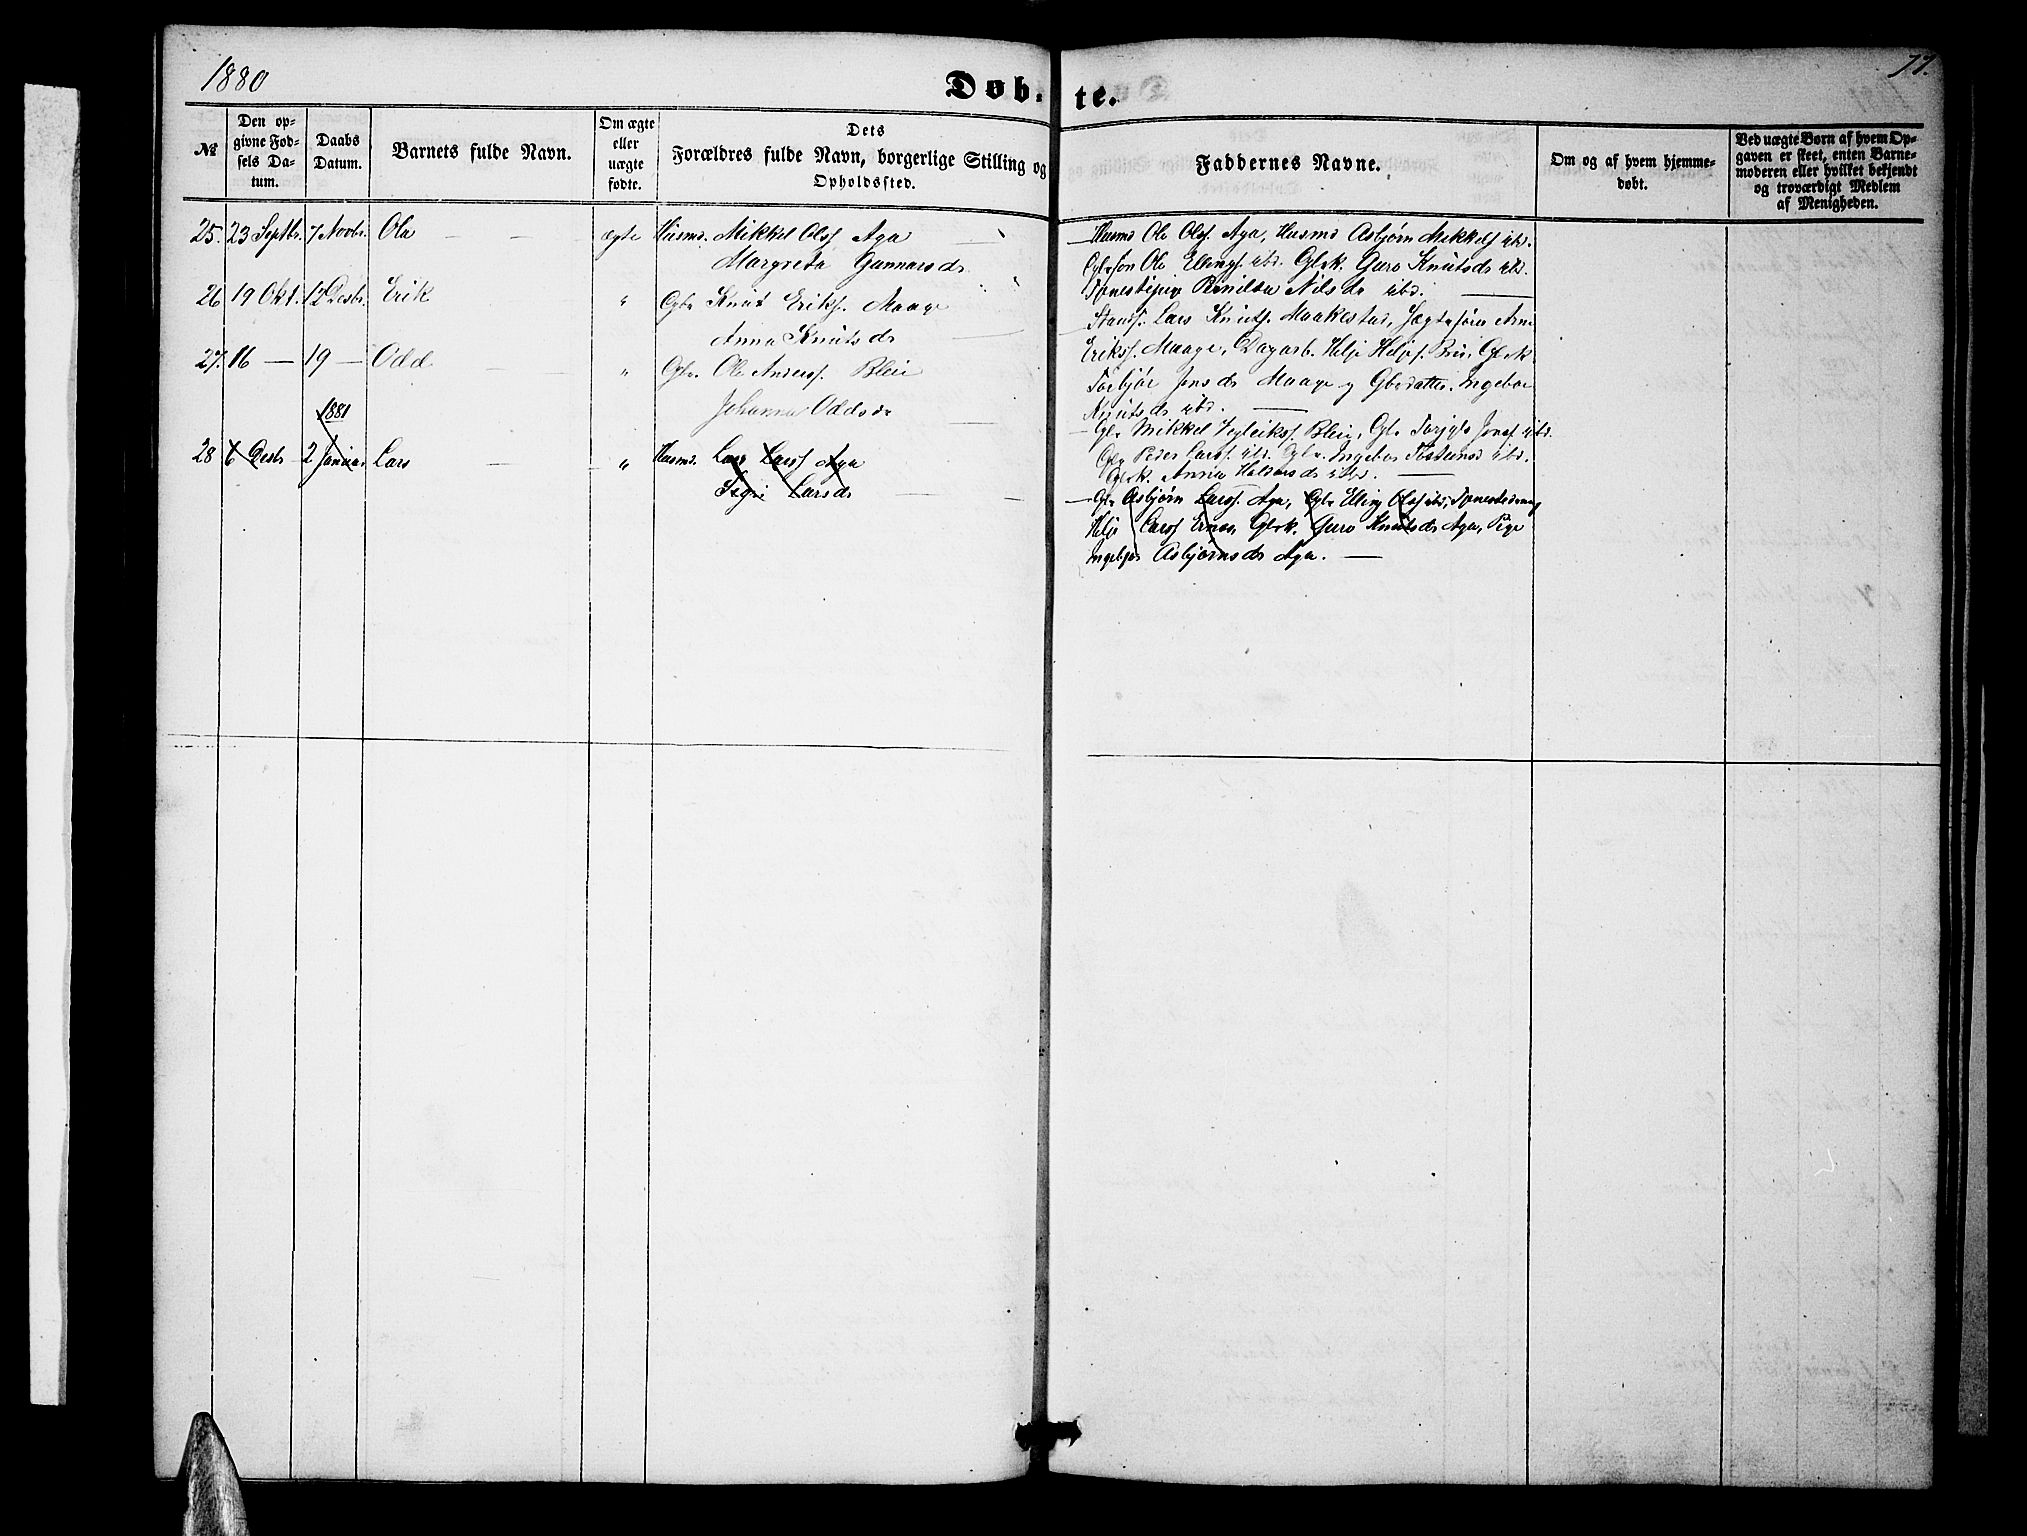 1880
Døb- te.
77.
№
Den op-
givne Fød-
sels Da-
tum.
Daabs
Datum.
Barnets fulde Navn.
Om ægte
eller
uægte
fødte.
Dets
Forældres fulde Navn, borgerlige Stilling og
Opholdssted.
Faddernes Navne.
Om og af hvem hjemme-
døbt.
Ved uægte Børn af hvem Op-
gaven er skeet, enten Barne-
moderen eller hvilket bekjendt
og troværdigt Medlem
af Menigheden.
25. 23 Septbr. 7 Novbr. Ola ægte Husmd. Mikkel Olss Aga
Margreta Gunnarsdr
Husmd Ole Olss. Aga, Husmd Asbjørn Mikkels ibd.
Gbrsøn Ole Ellings. ibd. Gbrk. Guro Knutsdr ibd.
Pernilla Nilsdr ibd.
26 19 Okt. 12 Desbr. Erik " Gbr Knut Eriks. Maage
Anna Knutsdr
Lars Knuts. Maakestad, Jægtefører Arne
Erikss. Maage, Dagarb. Helje Heljes. Gbrk
Torbjør Jonsdr Maage og Gbrdatter Ingebor
Knutsdr ibd.
27. 16 — 19 — Odd " Gbr. Ole Anders. Bleie
Johanna Oddsdr
Gbr Mikkel Bleie, Gbr Torgils Jons ibd.
Gbr Peder Larss. ibd. Gbr. Ingebor ibd.
Gbrk. Anna Haldorsdr ibd.
1881
28 6 Desbr 2 Januar Lars " Husmd. Lars Larss Aga
Sigri Larsdr
Gbr Asbjørn Larss. Aga, Gbr Elling Olss ibd,
Helje Larss Gbrk. Guro Knutsdr Aga, Pige
Ingebjør Asbjørnsdr Aga.